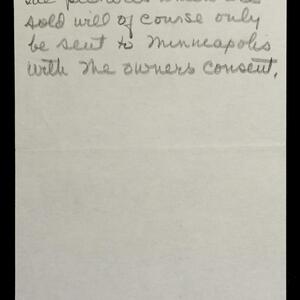 sold will of course only
be sent to Minneapolis
with the owners consent.